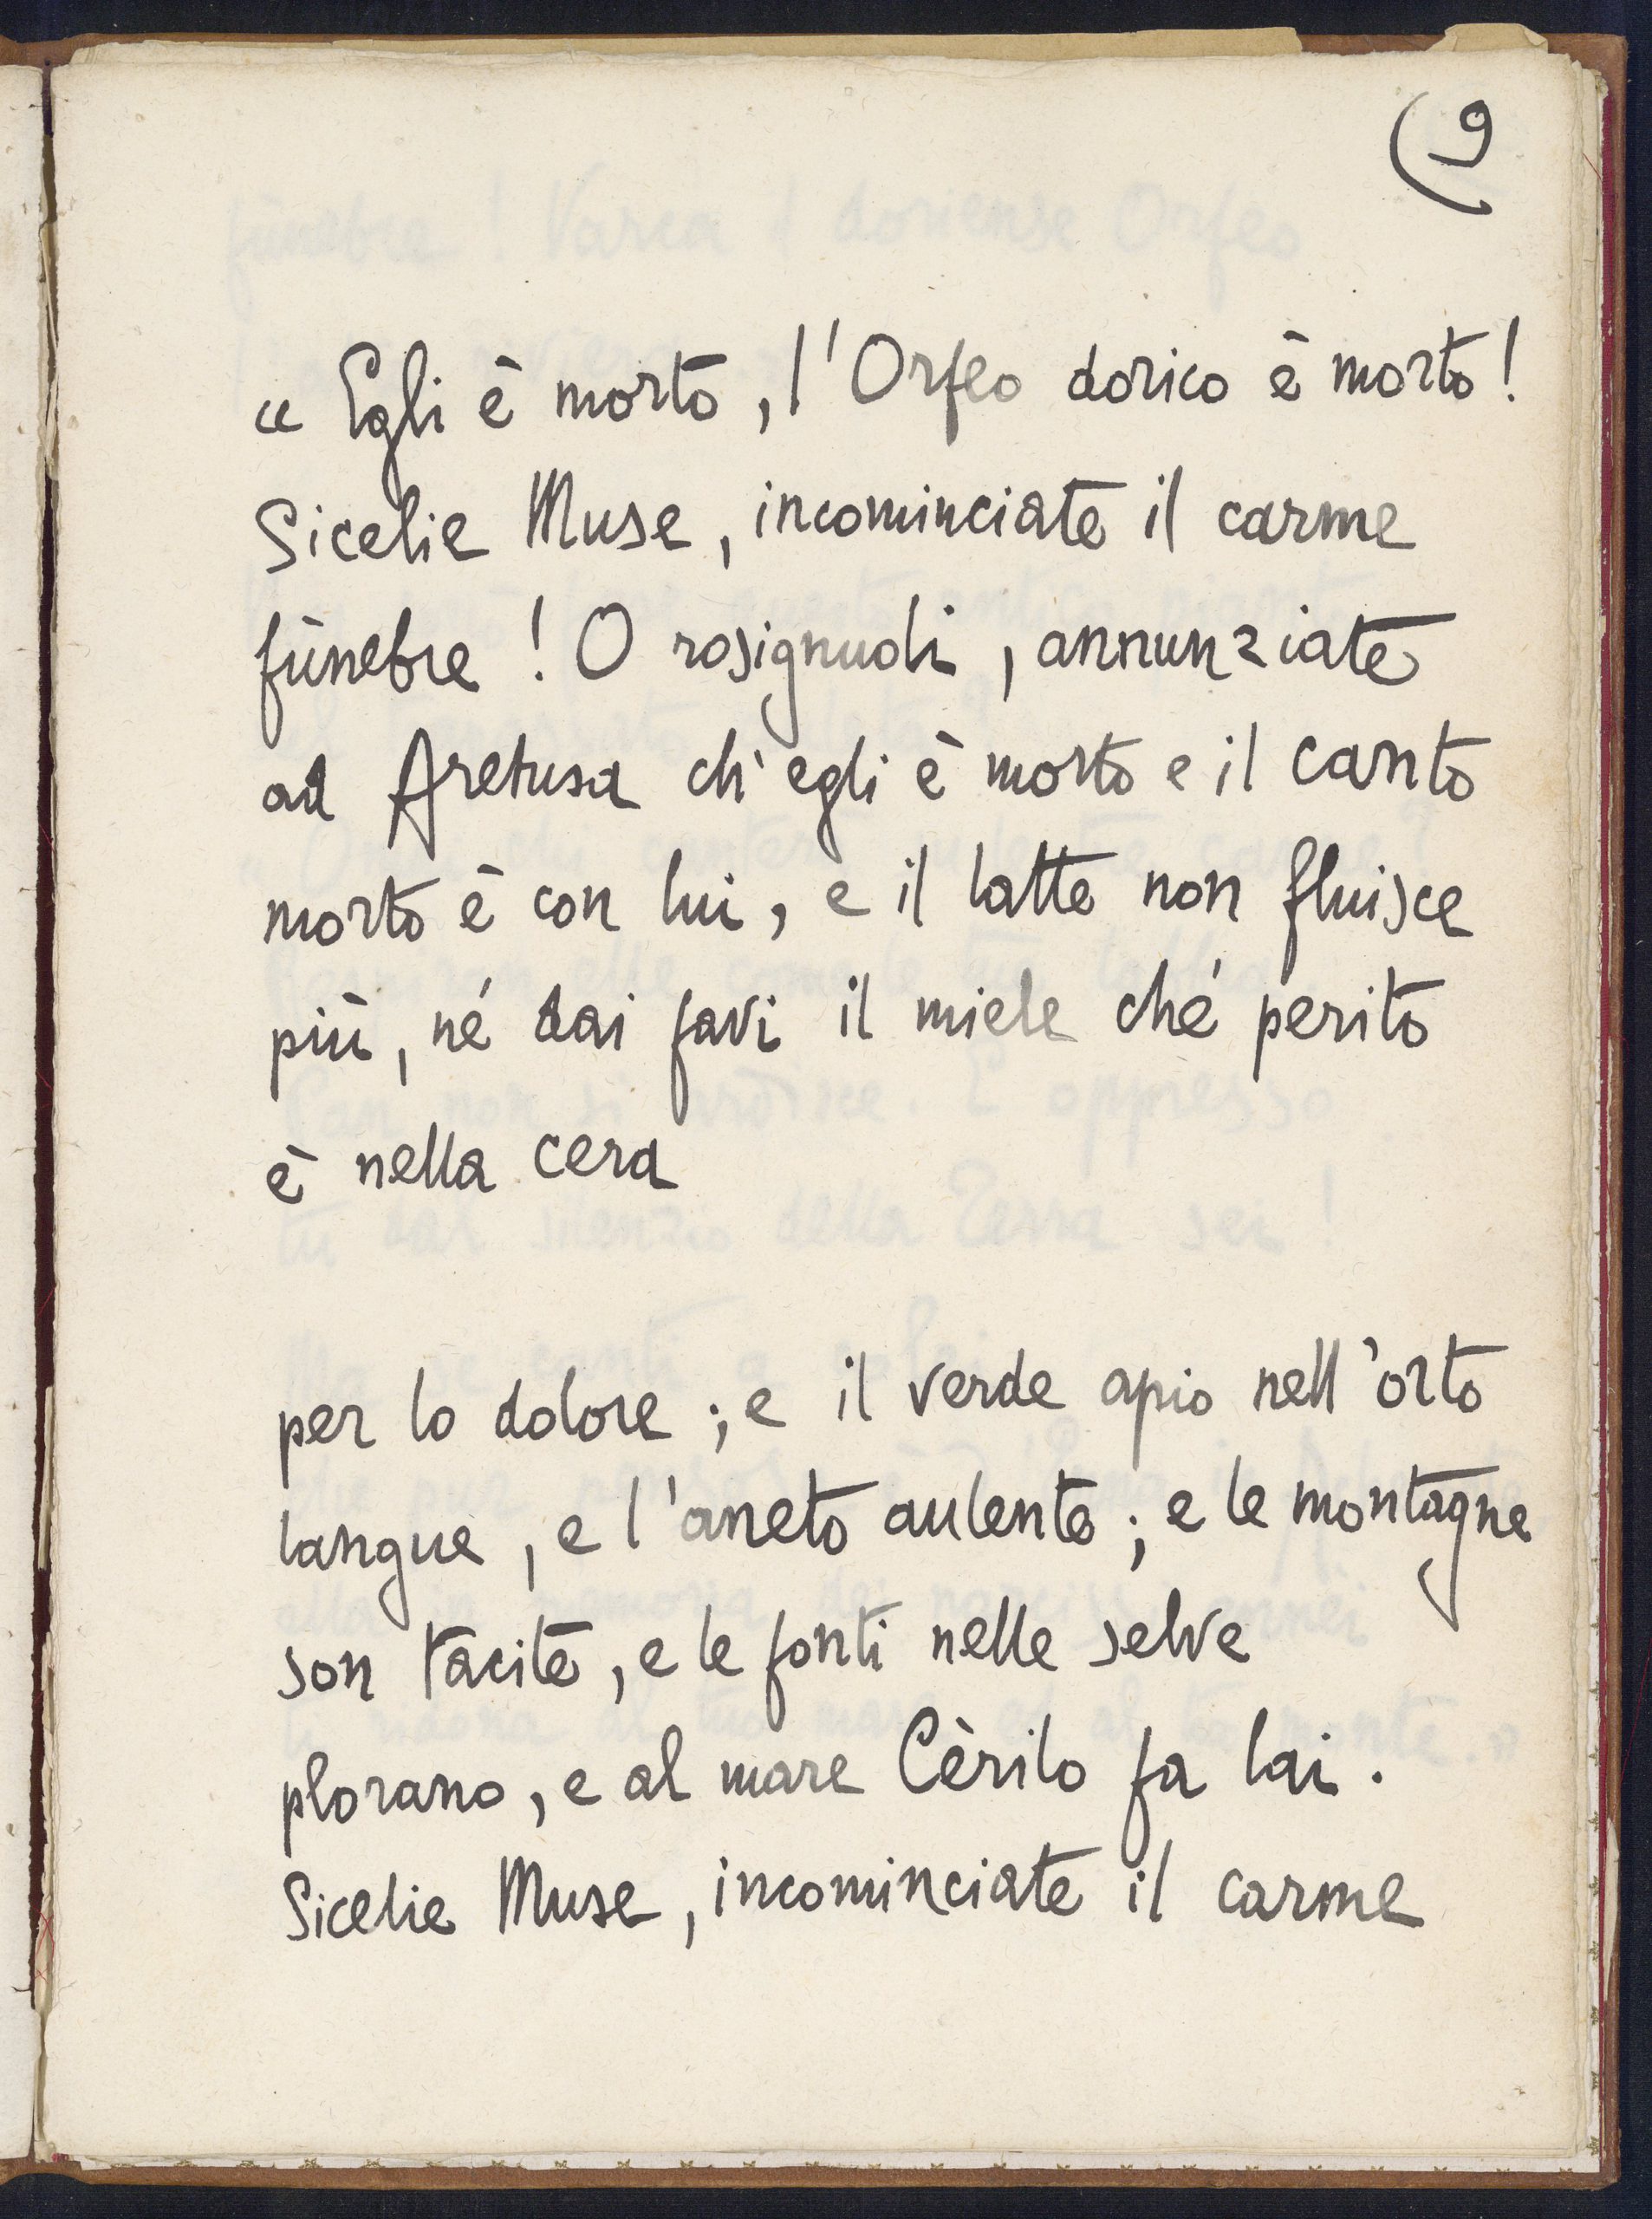 9
« Egli è morto, l'Orfeo dorico è morto!
Sicelie Muse, incominciate il carme
fùnebre! O rosignuoli, annunziate
ad Aretusa ch'egli è morto e il canto
morto è con lui, e il latte non fluisce
più, né dai favi il miele ché perito
è nella cera
per lo dolore; e il verde apio nell'orto
langue, e l'aneto aulente; e le montagne
son tacite, e le fonti nelle selve
plorano, e al mare Cèrilo fa lai.
Sicelie Muse, incominciate il carme